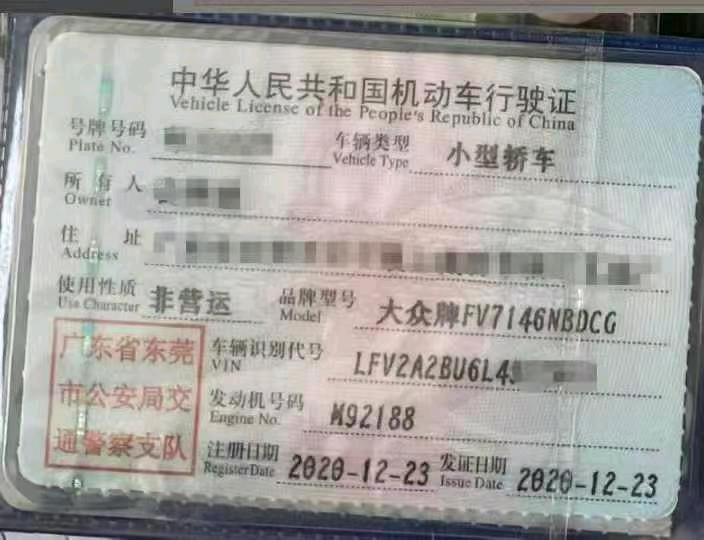 中华人民共和国机动车行驶证
Vehicle License of the People's Republic of China
号牌号码 Plate No. 车辆类型 Vehicle Type 小型轿车
所有人 Owner
住址 Address
使用性质 Use Character 非营运 品牌型号 Model 大众牌FV7146NBDCG
广东省东莞
市公安局交
通警察支队
车辆识别代号 VIN LFV2A2BU6L4
发动机号码 Engine No. M92188
注册日期 Register Date 2020-12-23 发证日期 Issue Date 2020-12-23